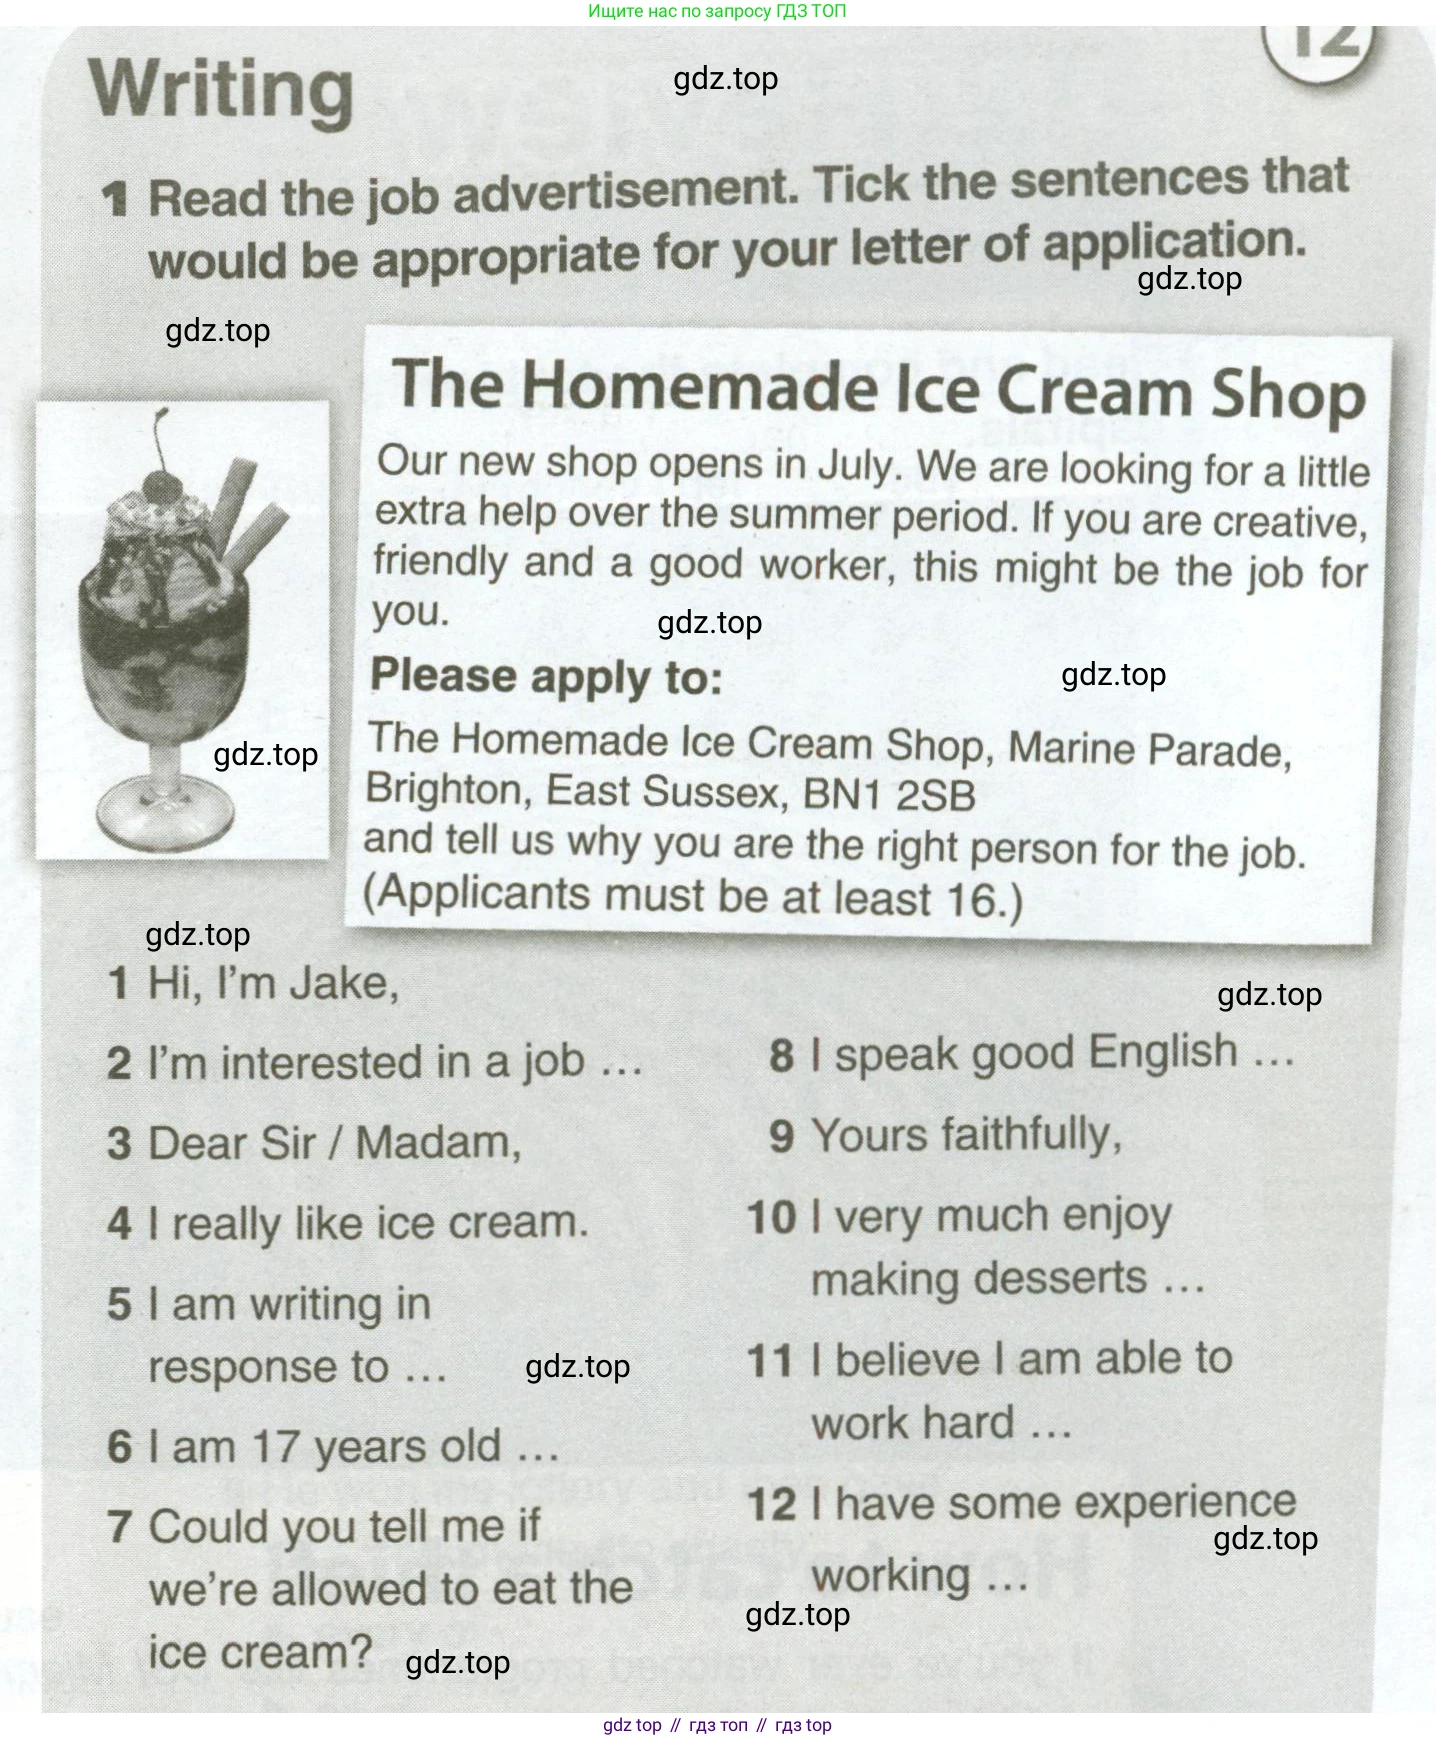 Ищите нас по запросу ГДЗ ТОП
12
Writing
gdz.top
1 Read the job advertisement. Tick the sentences that
would be appropriate for your letter of application.
gdz.top
gdz.top
The Homemade Ice Cream Shop
Our new shop opens in July. We are looking for a little
extra help over the summer period. If you are creative,
friendly and a good worker, this might be the job for
you.
gdz.top
Please apply to:
gdz.top
The Homemade Ice Cream Shop, Marine Parade,
gdz.top
Brighton, East Sussex, BN1 2SB
and tell us why you are the right person for the job.
(Applicants must be at least 16.)
gdz.top
1 Hi, I'm Jake,
gdz.top
2 I'm interested in a job ...
3 Dear Sir / Madam,
4 I really like ice cream.
5 I am writing in
response to ...
gdz.top
6 I am 17 years old ...
7 Could you tell me if
we're allowed to eat the
ice cream?
gdz.top
8 I speak good English ...
9 Yours faithfully,
10 I very much enjoy
making desserts ...
11 I believe I am able to
work hard ...
12 I have some experience
gdz.top
working ...
gdz.top
gdz top // гдз топ // гдз top